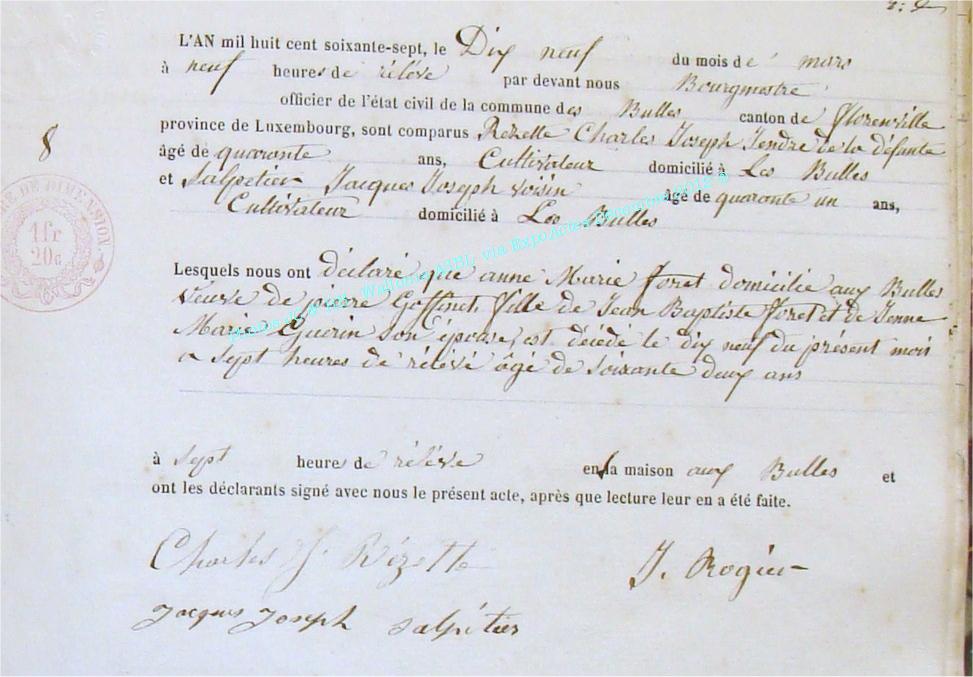 L'AN mil huit cent soixante-sept, le Dix neuf du mois de mars
à neuf heures de rélévé par devant nous Bourgmestre
officier de l'état civil de la commune des Bulles canton de florenville
province de Luxembourg, sont comparus Rezette Charles Joseph Jendre de la défunte
âgé de quaronte ans, Cultivateur domicilié à Les Bulles
et Salpetier Jacques Joseph voisin âgé de quaronte un ans,
Cultivateur domicilié à Les Bulles
Lesquels nous ont déclaré que anne Marie foret domicilié aux Bulles
Veuve de pierre Goffinet fille de Jean Baptiste foret et de Jenne
Marie Guerin son épouse, est décédé le dix neuf du présent mois
a Sept heures de rélévé âgé de soixante deux ans
à sept heures de rélévé en sa maison aux Bulles et
ont les déclarants signé avec nous le présent acte, après que lecture leur en a été faite.
Charles J. Rézette J. Rogier
Jacques Joseph Salpétier
8
DE DIMENSION.
1 fr
20 c
via ExpoActes